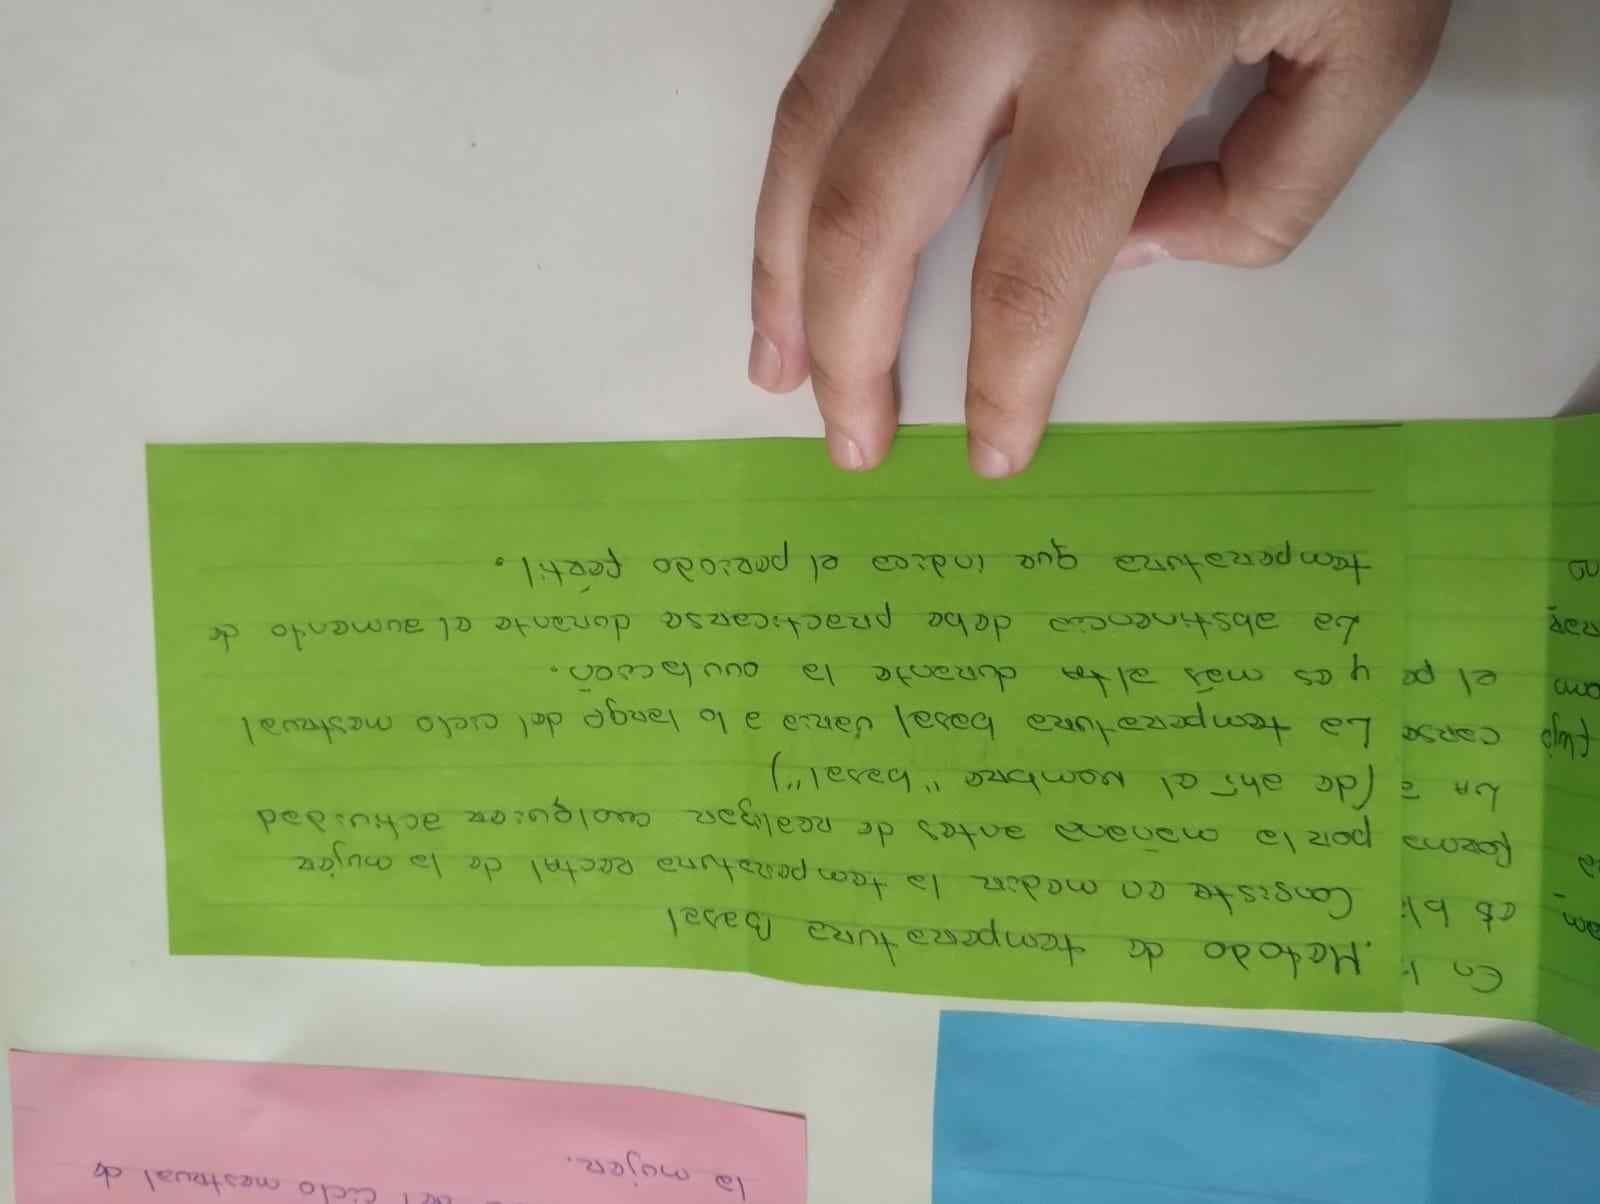 .Metodo de temperatura Basal
Consiste en medir la temperatura Rectal de la mujer
por la mañana antes de realizar cualquier actividad
(de ahí el nombre "basal")
La temperatura basal varia a lo largo del ciclo mestrual
y es más alta durante la ovulación.
La abstinencia debe practicarse durante el aumento de
temperatura que indica el periodo fértil.
En l
forma
el pe
flujo
del ciclo mestrual de
la mujer.